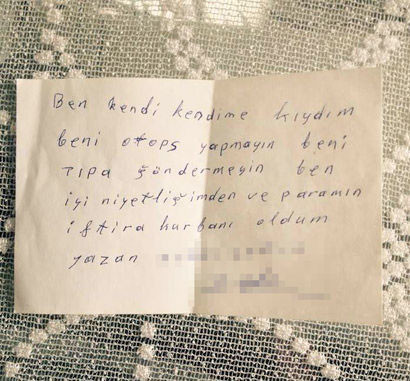 Ben kendi kendime kıydım
beni otops yapmayın beni
Tıpa göndermeyin ben
iyi niyetliğimden ve paramın
iftira kurbanı oldum
yazan